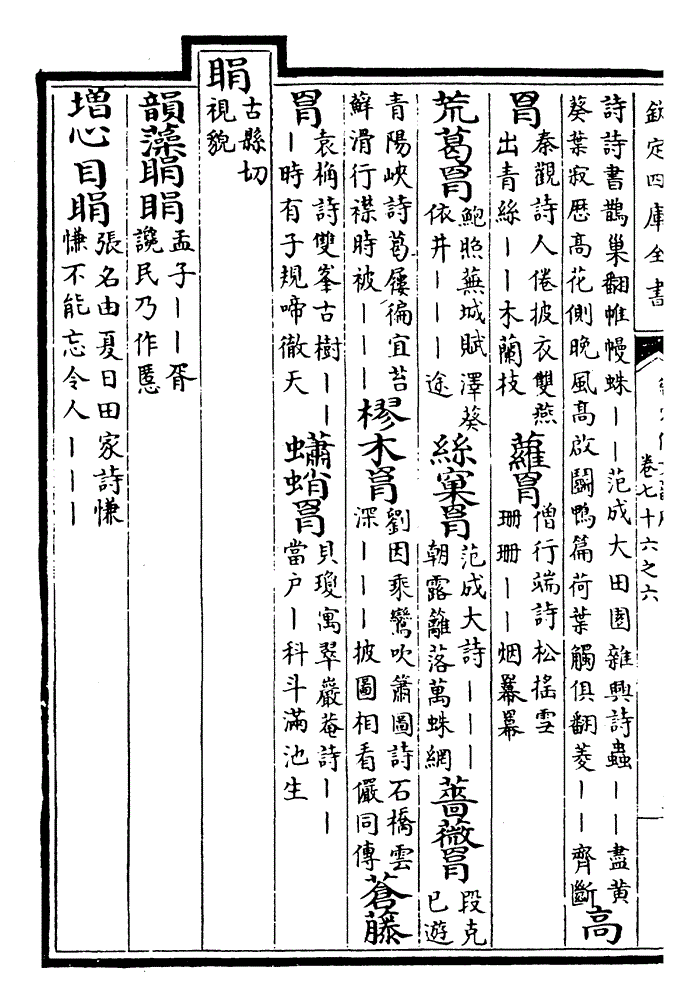 欽定四庫全書
卷七十六之六
詩詩書鵲巢翻帷幔蛛｜｜范成大田園雜興詩蟲｜｜盡黄
葵葉寂歴高花側晚風高啟鬭鴨篇荷葉觸俱翻菱｜｜齊斷高
罥秦觀詩人倦披衣雙燕出青絲｜｜木蘭枝蘿罥僧行端詩松搖雪珊珊｜｜烟羃羃
荒葛罥鮑照蕪城賦澤葵依井｜｜｜途絲窠罥范成大詩｜｜｜朝露籬落萬蛛網薔薇罥段克已遊
青陽峽詩葛屨徧宜苔蘚滑行襟時被｜｜｜樛木罥劉因乘鸞吹簫圖詩石橋雲深｜｜｜披圖相看儼同傳蒼藤
罥袁桷詩雙峯古樹｜｜｜時有子規啼徹天蠨蛸罥貝瓊寓翠巖菴詩｜｜當户｜科斗滿池生
睊古縣切視貌
韻藻睊睊孟子｜｜胥讒民乃作慝
増心目睊張名由夏日田家詩慊慊不能忘令人｜｜｜